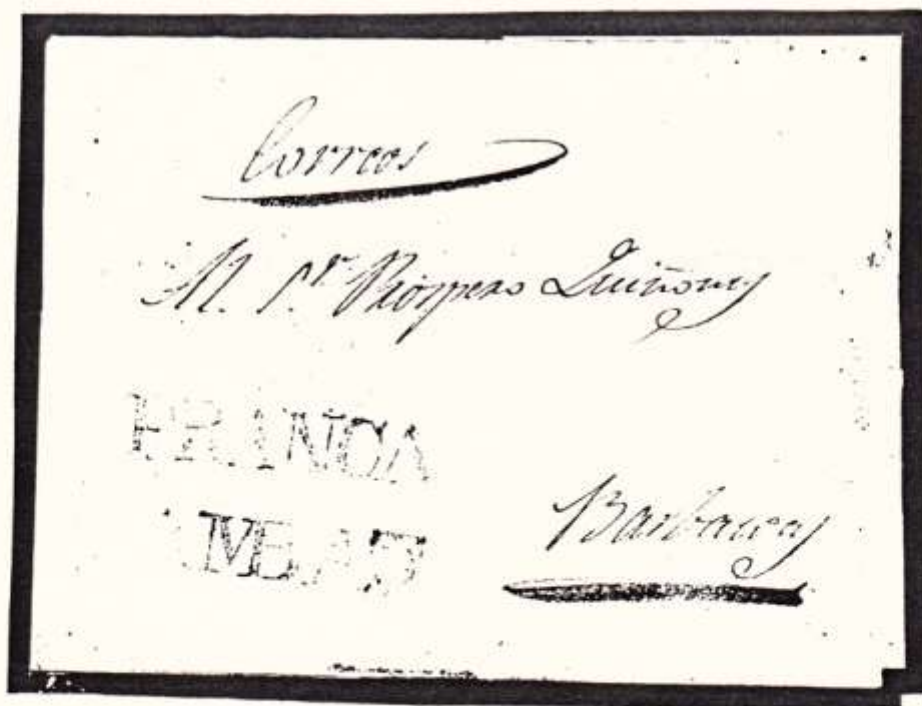 Correos
M. Sr. Prospero Quiñones
FRANCA
Barbacoas